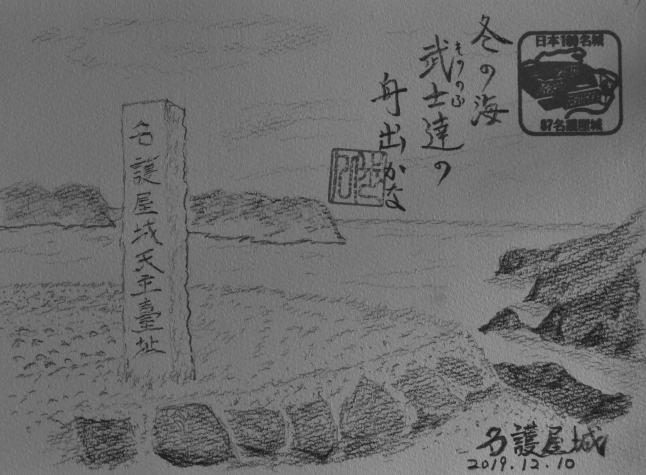 冬の海
武士達の
もののふ
舟出かな
日本100名城
87名護屋城
名護屋城天主臺址
名護屋城
2019.12.10